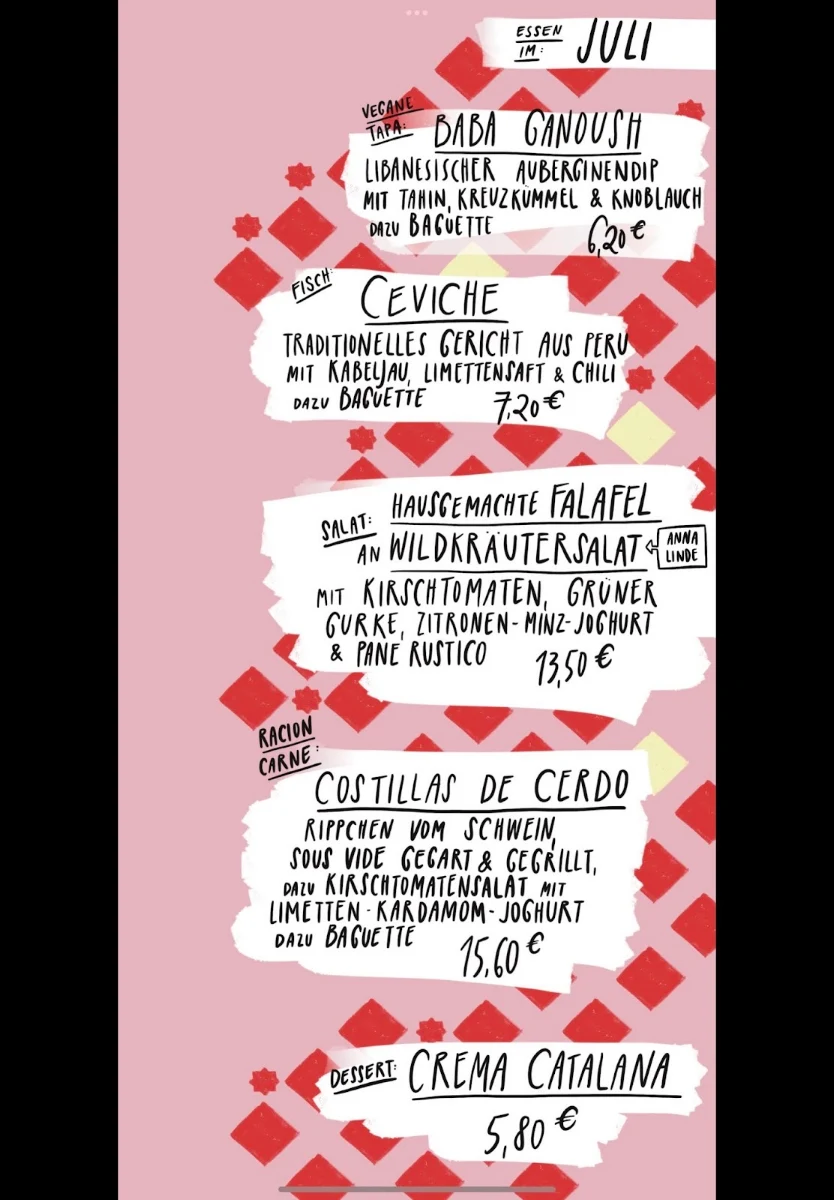 ESSEN
IM: JULI
VEGANE
TAPA: BABA GANOUSH
LIBANESISCHER AUBERGINENDIP
MIT TAHIN, KREUZKÜMMEL & KNOBLAUCH
DAZU BAGUETTE
6,20 €
FISCH: CEVICHE
TRADITIONELLES GERICHT AUS PERU
MIT KABELJAU, LIMETTENSAFT & CHILI
DAZU BAGUETTE 7,20 €
SALAT: HAUSGEMACHTE FALAFEL
AN WILDKRÄUTERSALAT ANNA
LINDE
MIT KIRSCHTOMATEN, GRÜNER
GURKE, ZITRONEN-MINZ-JOGHURT
& PANE RUSTICO 13,50 €
RACION
CARNE:
COSTILLAS DE CERDO
RIPPCHEN VOM SCHWEIN,
SOUS VIDE GEGART & GEGRILLT,
DAZU KIRSCHTOMATENSALAT MIT
LIMETTEN-KARDAMOM-JOGHURT
DAZU BAGUETTE 15,60 €
DESSERT: CREMA CATALANA
5,80 €